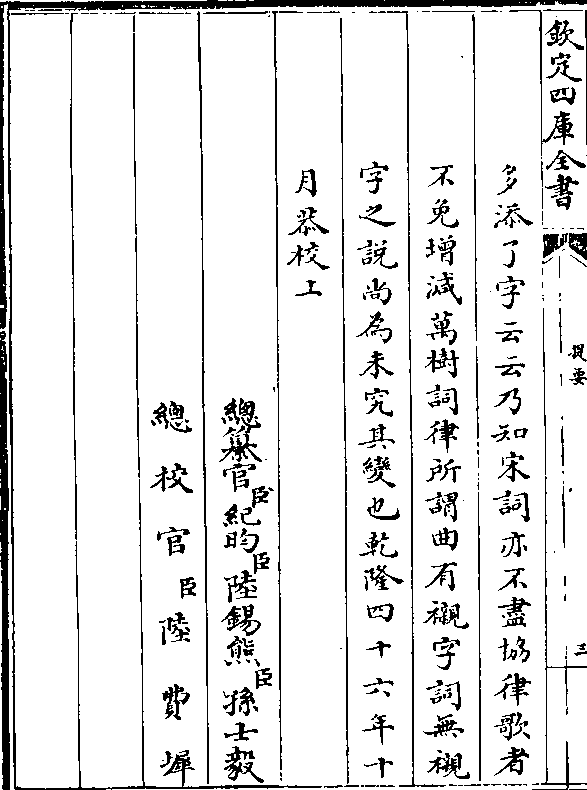 欽定四庫全書
提要
三
多添了字云云乃知宋詞亦不盡協律歌者
不免增減萬樹詞律所謂曲有襯字詞無襯
字之說尚為未究其變也乾隆四十六年十
月恭校上
總纂官臣紀昀臣陸錫熊臣孫士毅
總校官臣陸費墀